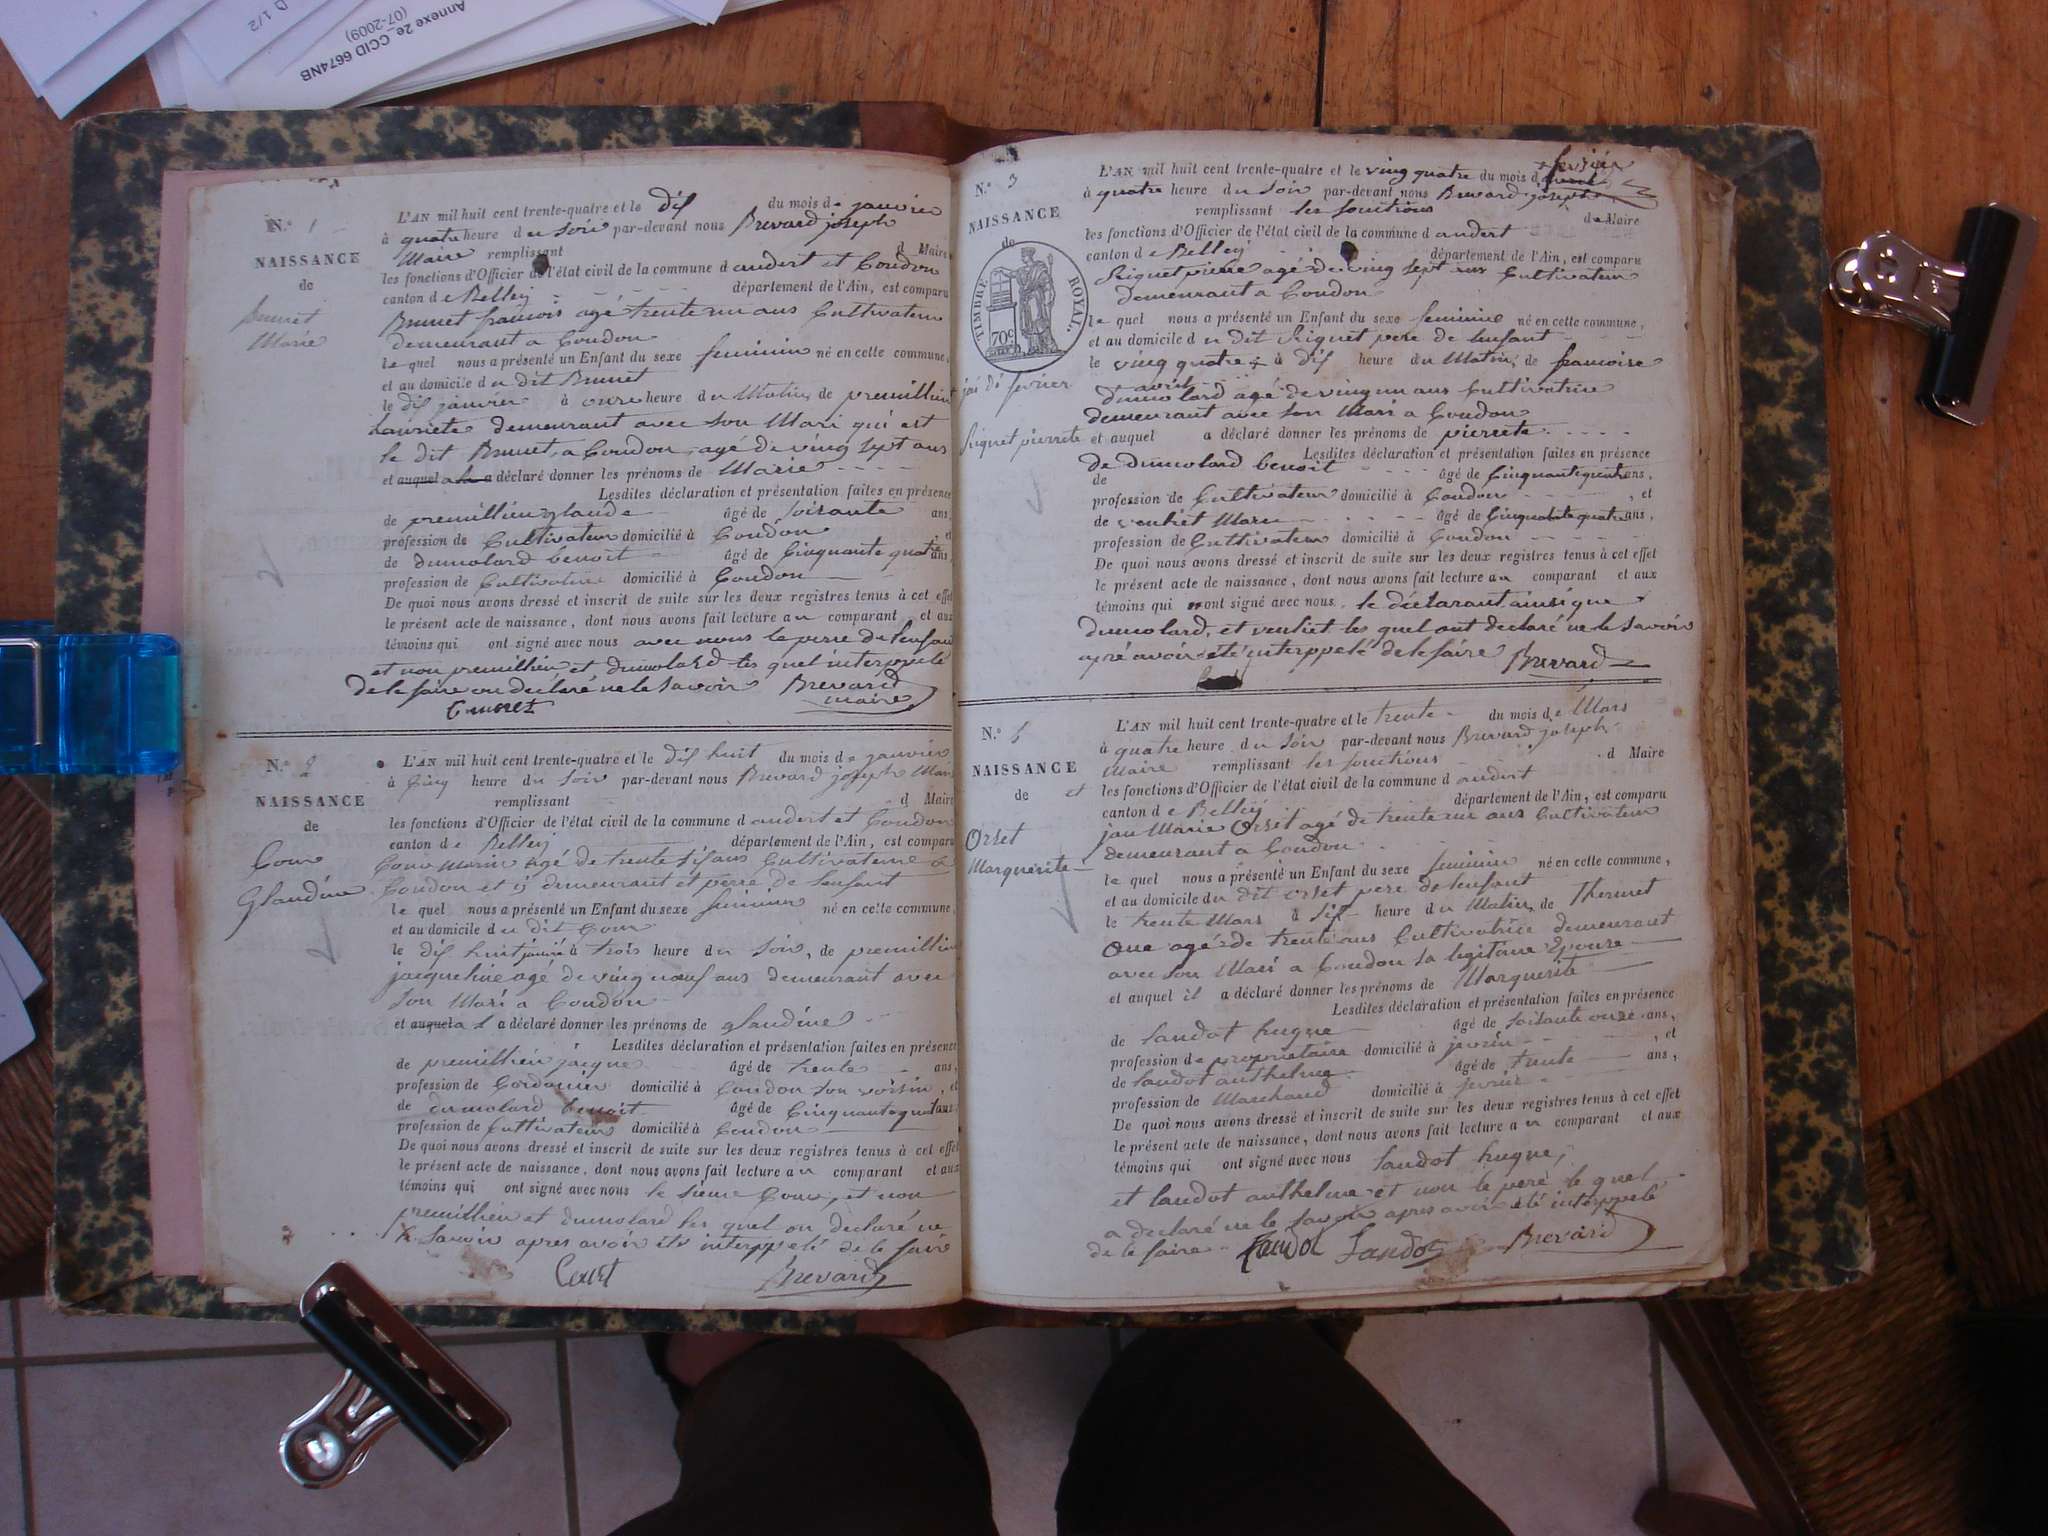 D 1/2
Annexe 2e_CCID 6674NB
(07-2009)
N.° 1
NAISSANCE
de
Brunet
Marie
L'AN mil huit cent trente-quatre et le dix du mois de janvier
à quatre heure du soir par-devant nous Brevard joseph
Maire remplissant d Maire
les fonctions d'Officier de l'état civil de la commune d andert et Condon
canton de Belley département de l'Ain, est comparu
Brunet francois agé trente un ans Cultivateur
demeurant a Condon
le quel nous a présenté un Enfant du sexe feminin né en cette commune,
et au domicile du dit Brunet
le dix janvier à onze heure du Matin, de premillieu
demeurant avec son Mari qui est
le dit Brunet, a Condon, agé de ving sept ans
et auquel a déclaré donner les prénoms de Marie
Lesdites déclaration et présentation faites en présence
de premillieu glaude âgé de soixante ans,
profession de Cultivateur domicilié à Condon et
de dumolard benoit âgé de Cinquante quatre ans,
profession de Cultivateur domicilié à Condon
De quoi nous avons dressé et inscrit de suite sur les deux registres tenus à cet effet
le présent acte de naissance, dont nous avons fait lecture au comparant et aux
témoins qui ont signé avec nous avec nous le perre de lenfan
et non premillieu et dumolard les quel interppelé
de le faire on déclaré ne le savoir Brevard
maire
N.° 2
NAISSANCE
de
Glaudine
L'AN mil huit cent trente-quatre et le dix huit du mois de janvier
à Cinq heure du soir par-devant nous Brevard joseph Maire
remplissant d Maire
les fonctions d'Officier de l'état civil de la commune d andert et Condon
canton de Belley département de l'Ain, est comparu
agé de trente six ans Cultivateur a
Condon et y demeurant et perre de lenfant
le quel nous a présenté un Enfant du sexe feminin né en cette commune,
et au domicile du dit
le dix huit janvié à trois heure du soir, de premillieu
jacqueline agé de ving neuf ans demeurant avec
son Mari a Condon
et auquel a déclaré donner les prénoms de glaudine
Lesdites déclaration et présentation faites en présence
de premillieu jacque âgé de trente ans,
profession de Cordonier domicilié à Condon son voisin, et
de dumolard benoit âgé de Cinquante quatre ans
profession de Cultivateur domicilié à Condon
De quoi nous avons dressé et inscrit de suite sur les deux registres tenus à cet effet
le présent acte de naissance, dont nous avons fait lecture au comparant et aux
témoins qui ont signé avec nous le sieur et non
premillieu et dumolard les quel on declaré ne
le savoir apres avoir été interppelé de le faire
Brevard
N.° 3
NAISSANCE
de
TIMBRE ROYAL.
70c
fevrier
Riquet pierrete
L'AN mil huit cent trente-quatre et le ving quatre du mois d fevrier
à quatre heure du soir par-devant nous Brevard joseph
remplissant les fonctions de Maire
les fonctions d'Officier de l'état civil de la commune d andert
canton de Belley département de l'Ain, est comparu
Riquet pierre agé de ving sept ans Cultivateur
demeurant a Condon
le quel nous a présenté un Enfant du sexe feminine né en cette commune,
et au domicile du dit Riquet pere de lenfant
le ving quatre à dix heure du Matin, de francoise
avril
dumolard agé de ving un ans Cultivatrice
demeurant avec son Mari a Condon
et auquel a déclaré donner les prénoms de pierrete
Lesdites déclaration et présentation faites en présence
de dumolard benoit âgé de Cinquante quatre ans,
profession de Cultivateur domicilié à Condon, et
de âgé de Cinquante quatre ans,
profession de Cultivateur domicilié à Condon
De quoi nous avons dressé et inscrit de suite sur les deux registres tenus à cet effet
le présent acte de naissance, dont nous avons fait lecture au comparant et aux
témoins qui ont signé avec nous le déclarant ainsi que
dumolard, et les quel ont déclaré ne le savoir
apré avoir été interppelé de le faire Brevard
N.°
NAISSANCE
de
Orset
Marguerite
L'AN mil huit cent trente-quatre et le trente du mois de Mars
à quatre heure du soir par-devant nous Brevard joseph
Maire remplissant les fonctions d Maire
les fonctions d'Officier de l'état civil de la commune d andert et
canton de Belley département de l'Ain, est comparu
jan Marie Orset agé de trente un ans Cultivateur
demeurant a Condon
le quel nous a présenté un Enfant du sexe feminin né en cette commune,
et au domicile du dit orset pere de lenfant
le trente Mars à six heure du Matin, de
agé de trente ans Cultivatrice demeurant
avec son Mari a Condon sa legitime Epouze
et auquel il a déclaré donner les prénoms de Marguerite
Lesdites déclaration et présentation faites en présence
de landot hugue âgé de soixante onze ans,
profession de proprietaire domicilié à, et
de landot anthelme âgé de trente ans,
profession de Marchand domicilié à
De quoi nous avons dressé et inscrit de suite sur les deux registres tenus à cet effet
le présent acte de naissance, dont nous avons fait lecture au comparant et aux
témoins qui ont signé avec nous landot hugue,
et landot anthelme et non le peré le quel
a declaré ne le savoir apres avoir été interppelé
de le faire Landot Landot Brevard